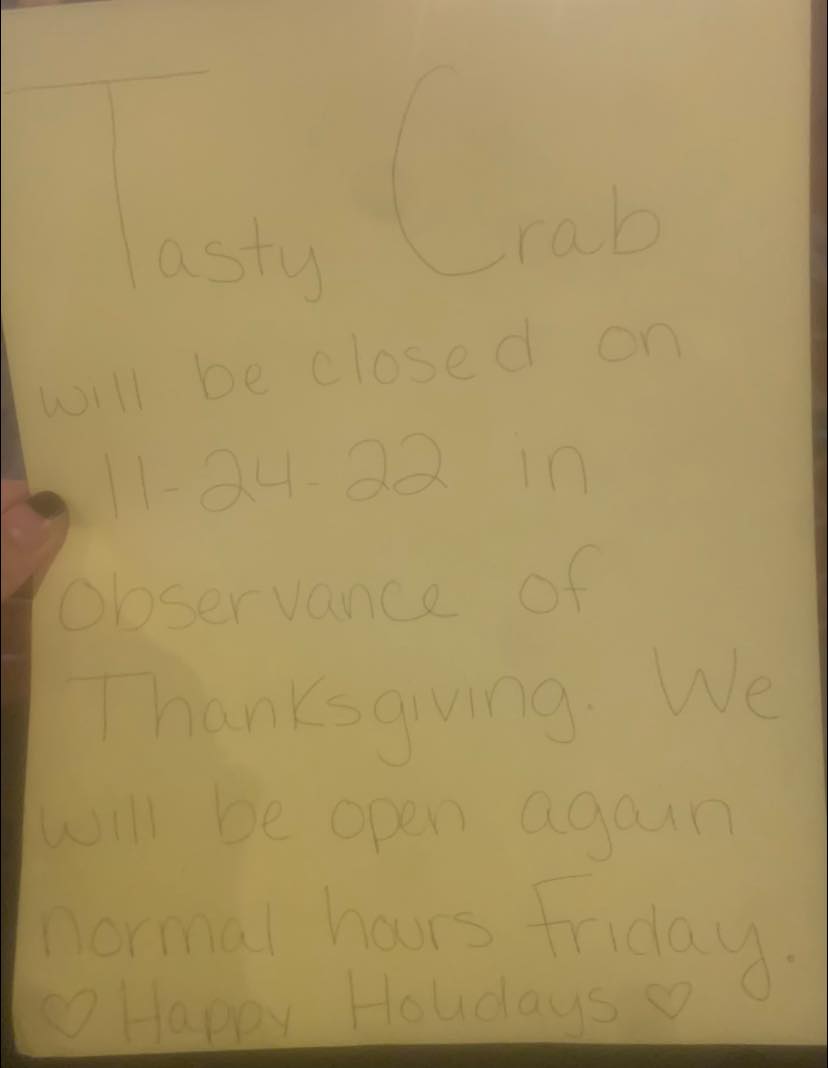 Tasty Crab
will be closed on
11-24-22 in
observance of
Thanksgiving. We
will be open again
normal hours Friday.
♡ Happy Holidays ♡